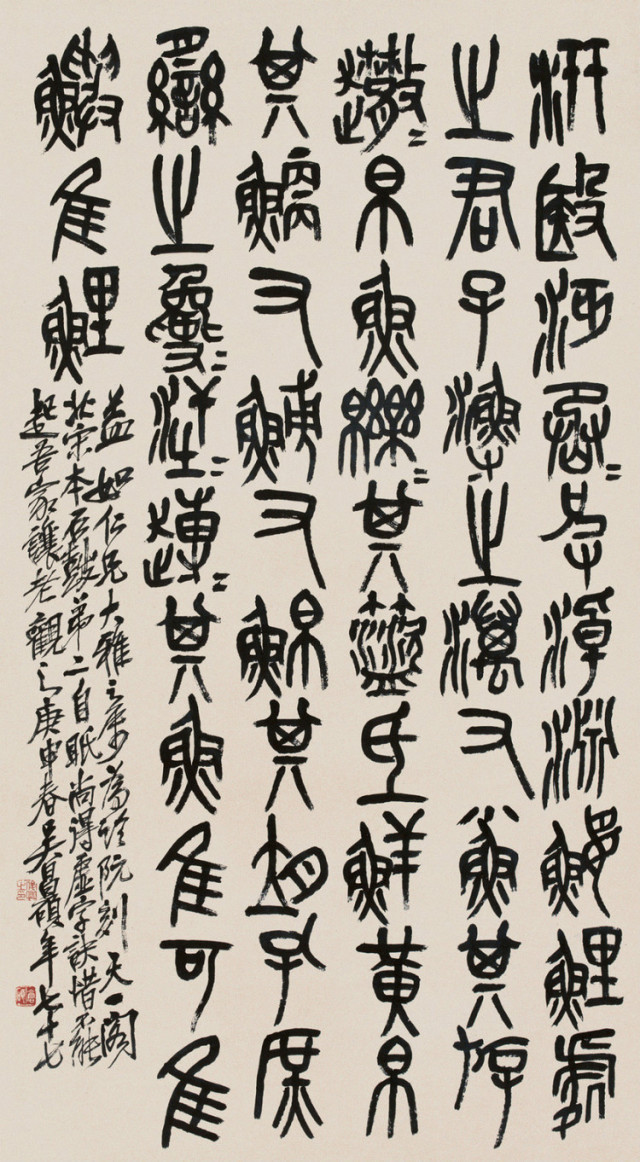 汧殹沔=烝皮淖淵鰋鯉處
之君子漁之澫又小魚其斿
趣=帛魚皪=其盜氐鮮黃帛
其鯾又鯆又鮊其孔庶
臠之=汗=趍=其魚隹可隹
鱮隹鯉
益如仁兄大雅之屬為臨阮刻天一閣
北宋本石鼓第二自眂尚得虛字訣惜不能
起吾家讓老觀之庚申春吳昌碩年七十七